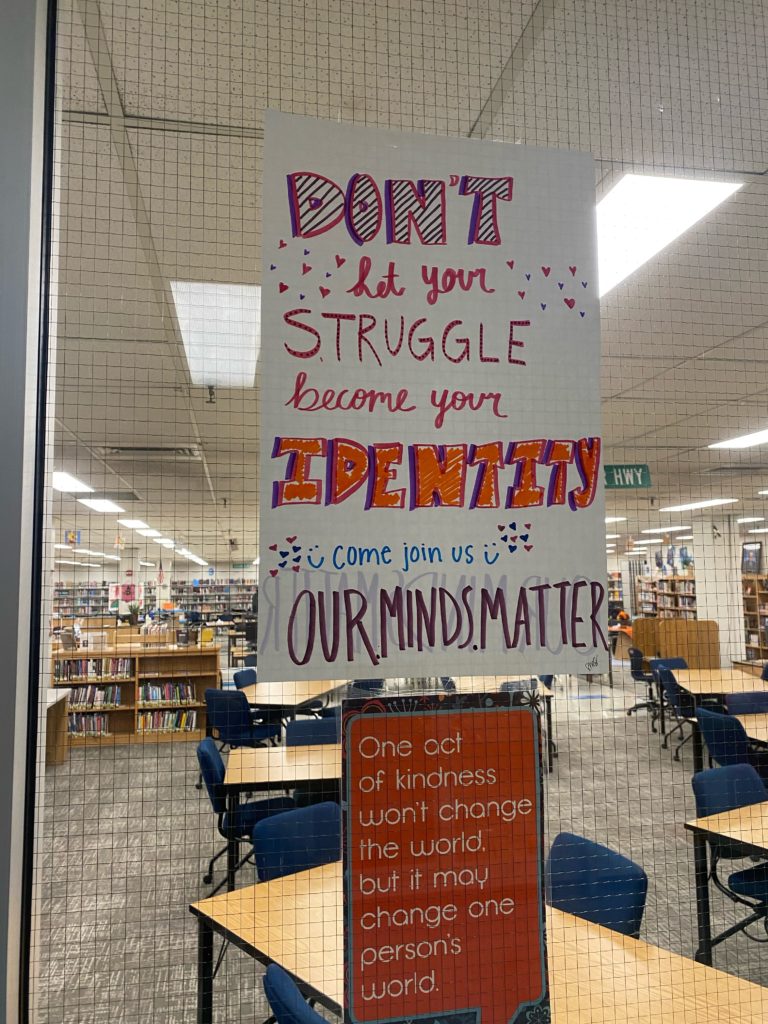 DON'T
Let your
STRUGGLE
become your
IDENTITY
HWY
come join us
OUR.MINDS.MATTER
One act
of kindness
won't change
the world,
but it may
change one
person's
world.